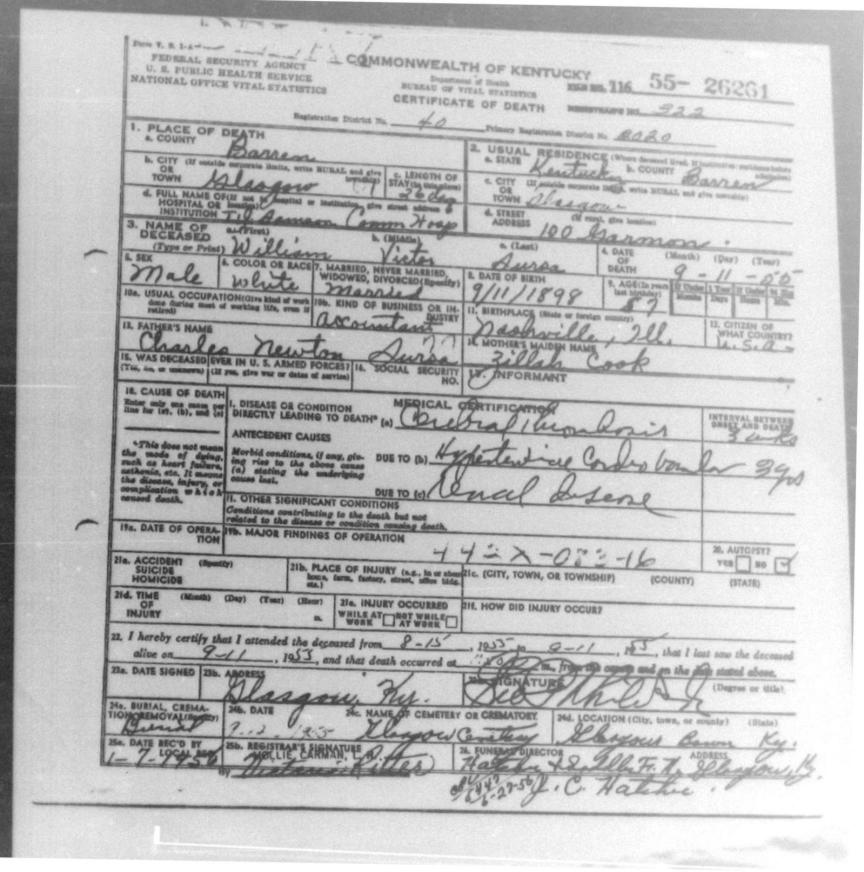 COMMONWEALTH OF KENTUCKY
FEDERAL SECURITY AGENCY
U. S. PUBLIC HEALTH SERVICE
NATIONAL OFFICE VITAL STATISTICS
Department of Health
BUREAU OF VITAL STATISTICS
CERTIFICATE OF DEATH
FILE NO. 116 55- 26261
REGISTRAR'S NO. 322
Registration District No. 40 Primary Registration District No. 2020
1. PLACE OF DEATH
a. COUNTY Barren
2. USUAL RESIDENCE (Where deceased lived. If institution: residence before admission)
a. STATE Kentucky b. COUNTY Barren
b. CITY (If outside corporate limits, write RURAL and give township) OR TOWN Glasgow
c. LENGTH OF STAY (in this place) 26 day
c. CITY (If outside corporate limits, write RURAL and give township) OR TOWN Glasgow
d. FULL NAME OF (If not in hospital or institution, give street address) HOSPITAL OR INSTITUTION T. J. Samson Comm Hosp
d. STREET ADDRESS (If rural, give location) 100 Garmon
3. NAME OF DECEASED (Type or Print)
a. (First) William b. (Middle) Victor c. (Last) Sursa
4. DATE OF DEATH (Month) (Day) (Year) 9-11-55
5. SEX Male
6. COLOR OR RACE White
7. MARRIED, NEVER MARRIED, WIDOWED, DIVORCED (Specify) Married
8. DATE OF BIRTH 9/11/1898
9. AGE (In years last birthday) 57
If Under 1 Year Months Days If Under 24 Hrs Hours Min.
10a. USUAL OCCUPATION (Give kind of work done during most of working life, even if retired)
10b. KIND OF BUSINESS OR INDUSTRY accountant
11. BIRTHPLACE (State or foreign country) Nashville, Ill.
12. CITIZEN OF WHAT COUNTRY? U.S.A.
13. FATHER'S NAME Charles Newton Sursa
14. MOTHER'S MAIDEN NAME Zillah Cook
15. WAS DECEASED EVER IN U. S. ARMED FORCES? (Yes, no, or unknown) (If yes, give war or dates of service)
16. SOCIAL SECURITY NO.
17. INFORMANT
18. CAUSE OF DEATH
Enter only one cause per line for (a), (b), and (c)
MEDICAL CERTIFICATION
INTERVAL BETWEEN ONSET AND DEATH
I. DISEASE OR CONDITION DIRECTLY LEADING TO DEATH* (a) Cerebral Thrombosis 3 wks
*This does not mean the mode of dying, such as heart failure, asthenia, etc. It means the disease, injury, or complication which caused death.
ANTECEDENT CAUSES
Morbid conditions, if any, giving rise to the above cause (a) stating the underlying cause last.
DUE TO (b) Hypertensive Cardio vascular 3 yrs
DUE TO (c) renal disease
II. OTHER SIGNIFICANT CONDITIONS
Conditions contributing to the death but not related to the disease or condition causing death.
19a. DATE OF OPERATION
19b. MAJOR FINDINGS OF OPERATION
20. AUTOPSY? YES NO
21a. ACCIDENT SUICIDE HOMICIDE (Specify)
21b. PLACE OF INJURY (e.g., in or about home, farm, factory, street, office bldg. etc.)
21c. (CITY, TOWN, OR TOWNSHIP) (COUNTY) (STATE)
21d. TIME OF INJURY (Month) (Day) (Year) (Hour) m.
21e. INJURY OCCURRED WHILE AT WORK NOT WHILE AT WORK
21f. HOW DID INJURY OCCUR?
22. I hereby certify that I attended the deceased from 8-15, 1955 to 9-11, 1955, that I last saw the deceased
alive on 9-11, 1955, and that death occurred at m., from the causes and on the date stated above.
23a. DATE SIGNED
23b. ADDRESS Glasgow, Ky.
SIGNATURE (Degree or title)
24a. BURIAL, CREMATION, REMOVAL (Specify) Burial
24b. DATE
24c. NAME OF CEMETERY OR CREMATORY Glasgow Cemetery
24d. LOCATION (City, town, or county) (State) Glasgow Barren Ky.
25a. DATE REC'D BY LOCAL REG. 1-7-1956
25b. REGISTRAR'S SIGNATURE
MOLLIE CARMAN, L. R.
By Ritter
26. FUNERAL DIRECTOR ADDRESS Glasgow, Ky.
6-27-56 J. C. Hatcher